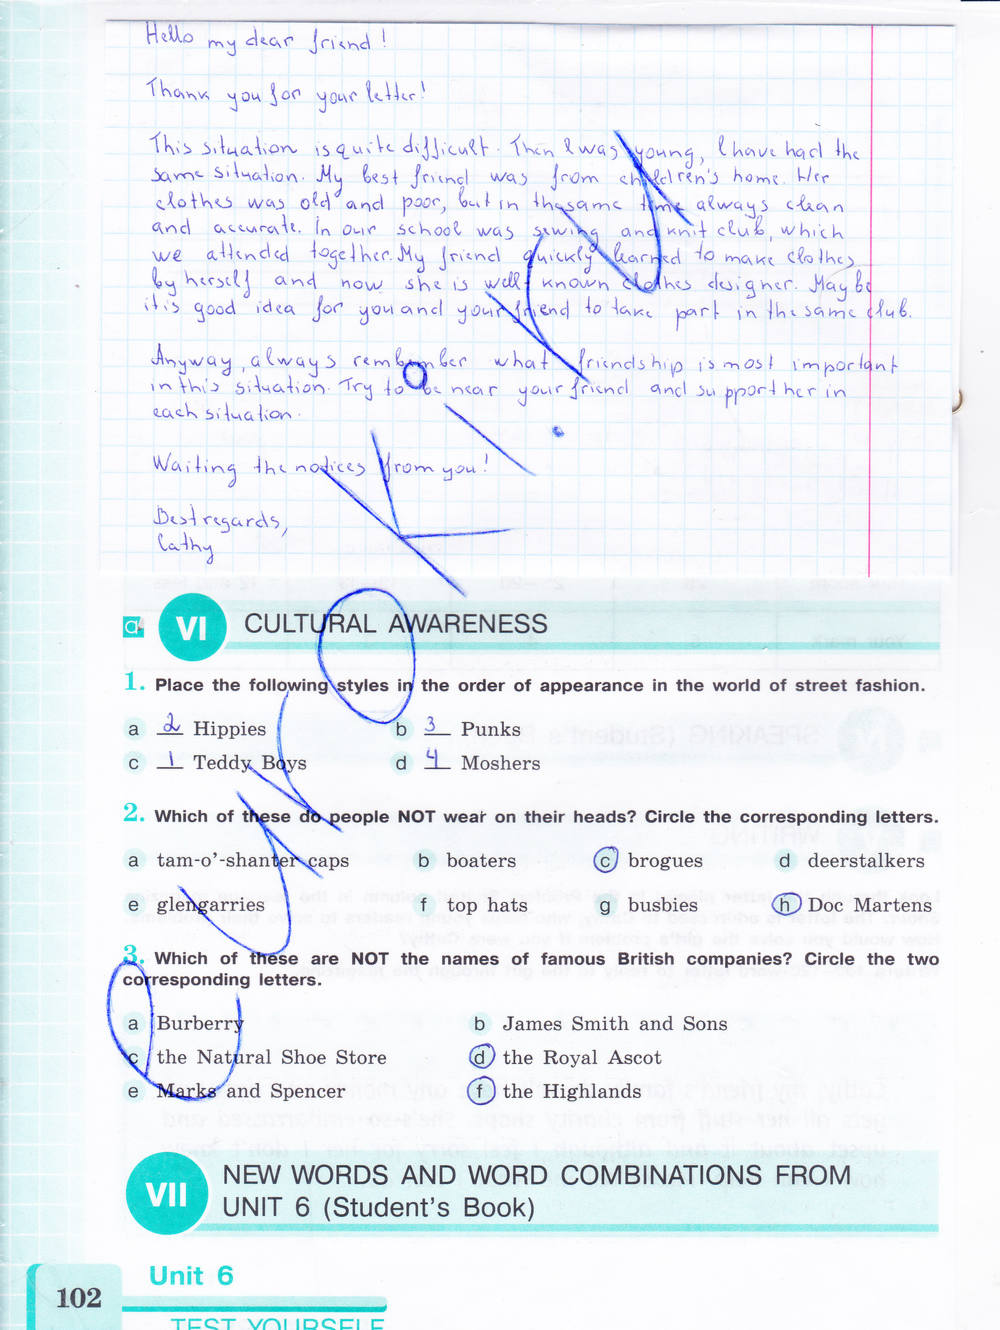 Hello my dear friend!
Thank you for your letter!
This situation is quite difficult. Then I was young, I have had the
same situation. My best friend was from children's home. Her
clothes was old and poor, but in the same time always clean
and accurate. In our school was sewing and knit club, which
we attended together. My friend quickly learned to make clothes
by herself and now she is well-known clothes designer. Maybe
it is good idea for you and your friend to take part in the same club.
Anyway, always remember what friendship is most important
in this situation. Try to be near your friend and support her in
each situation.
Waiting the notices from you!
Best regards,
Cathy
VI CULTURAL AWARENESS
1. Place the following styles in the order of appearance in the world of street fashion.
a 2 Hippies b 3 Punks
c 1 Teddy Boys d 4 Moshers
2. Which of these do people NOT wear on their heads? Circle the corresponding letters.
a tam-o'-shanter caps b boaters c brogues d deerstalkers
e glengarries f top hats g busbies h Doc Martens
3. Which of these are NOT the names of famous British companies? Circle the two
corresponding letters.
a Burberry b James Smith and Sons
c the Natural Shoe Store d the Royal Ascot
e Marks and Spencer f the Highlands
VII NEW WORDS AND WORD COMBINATIONS FROM
UNIT 6 (Student's Book)
Unit 6
102
TEST YOURSELF